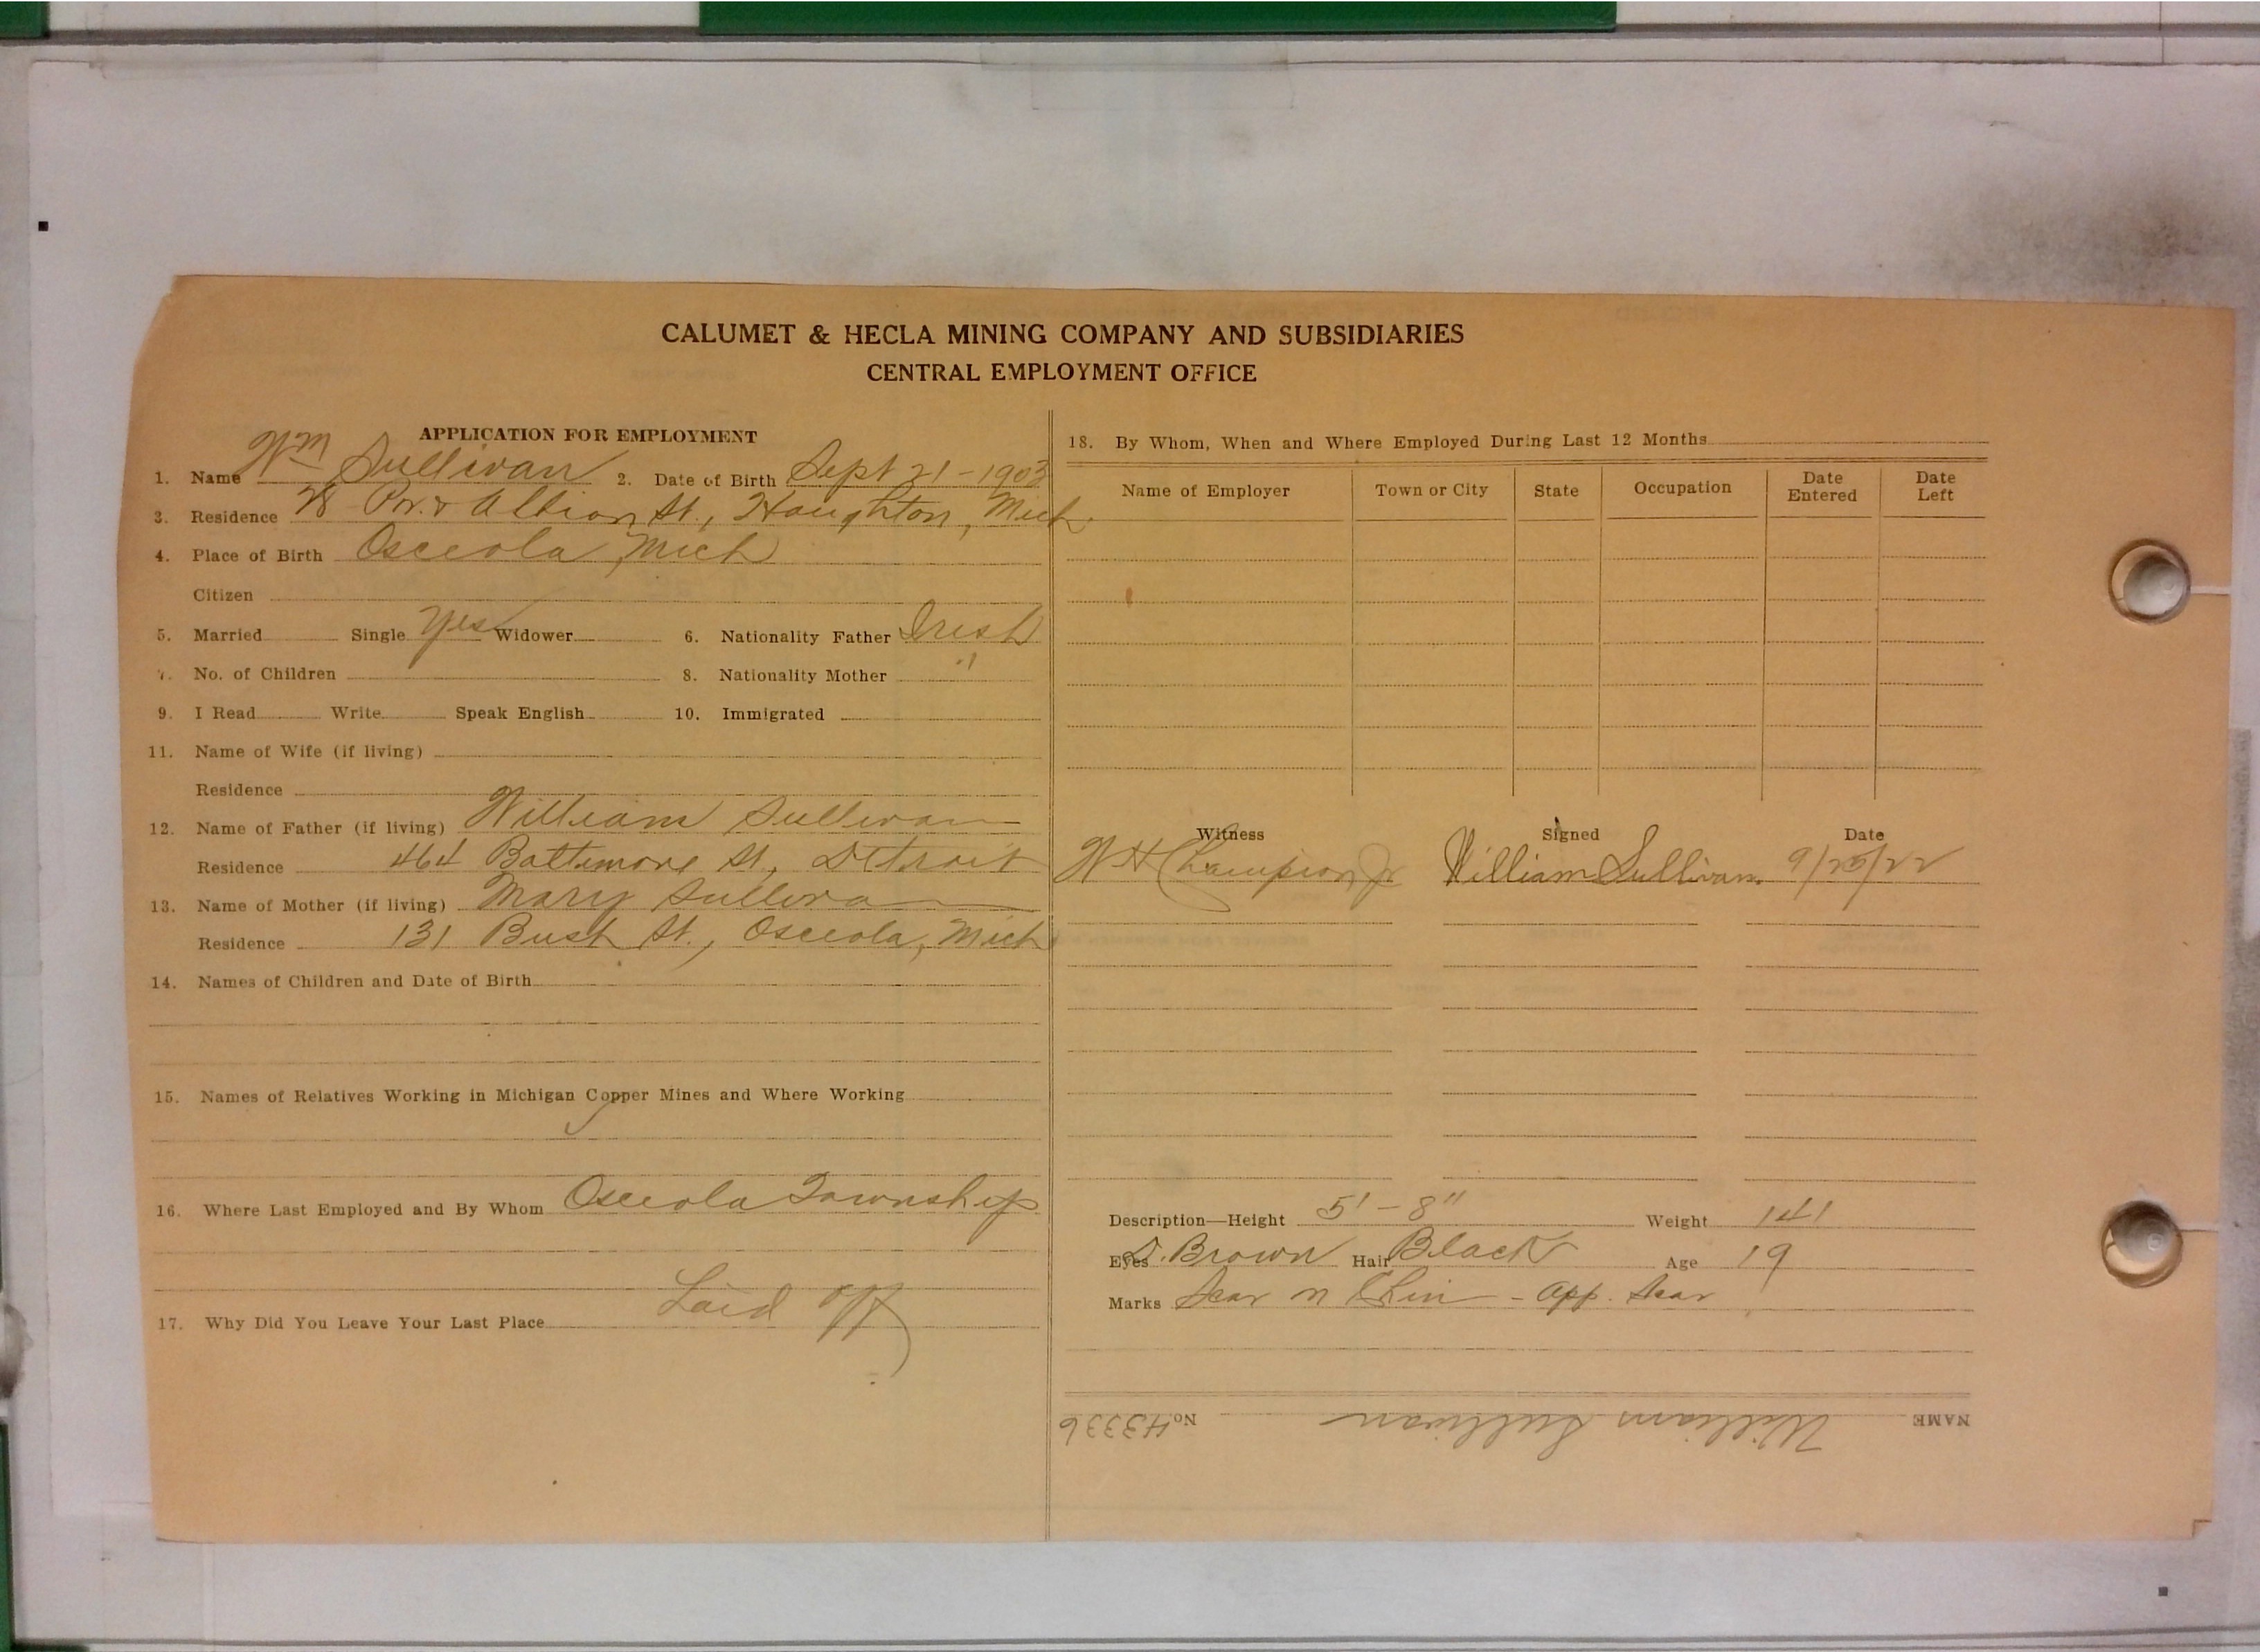 CALUMET & HECLA MINING COMPANY AND SUBSIDIARIES
CENTRAL EMPLOYMENT OFFICE
APPLICATION FOR EMPLOYMENT
1. Name Wm Sullivan 2. Date of Birth Sept 21-1903
3. Residence Albion St., Houghton, Mich.
4. Place of Birth Osceola, Mich
Citizen
5. Married Single Yes Widower 6. Nationality Father Irish
7. No. of Children 8. Nationality Mother "
9. I Read Write Speak English 10. Immigrated
11. Name of Wife (if living)
Residence
12. Name of Father (if living) William Sullivan
Residence 464 Baltimore St., Detroit
13. Name of Mother (if living) Mary Sullivan
Residence 131 Bush St., Osceola, Mich
14. Names of Children and Date of Birth
15. Names of Relatives Working in Michigan Copper Mines and Where Working
16. Where Last Employed and By Whom Osceola Township
17. Why Did You Leave Your Last Place Laid off
18. By Whom, When and Where Employed During Last 12 Months
Name of Employer Town or City State Occupation Date Entered Date Left
Witness Signed Date
W H Champion Jr William Sullivan. 9/25/22
Description—Height 5'-8" Weight 141
Eyes D. Brown Hair Black Age 19
Marks Scar n Chin - App. Scar
NAME William Sullivan No 43336